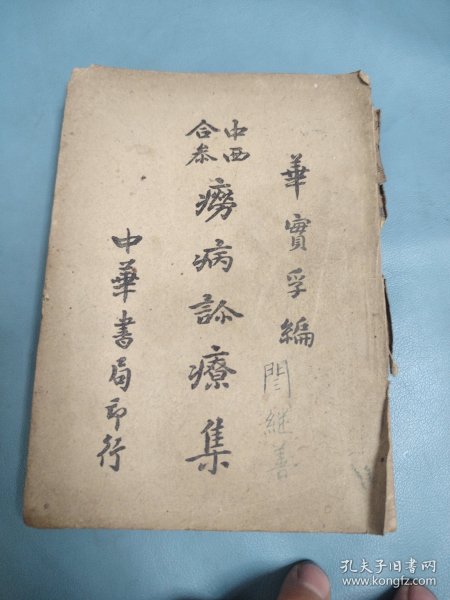 華實孚編
閆继善
中西
合參
癆病診療集
中華書局印行
孔夫子旧书网
www.kongfz.com